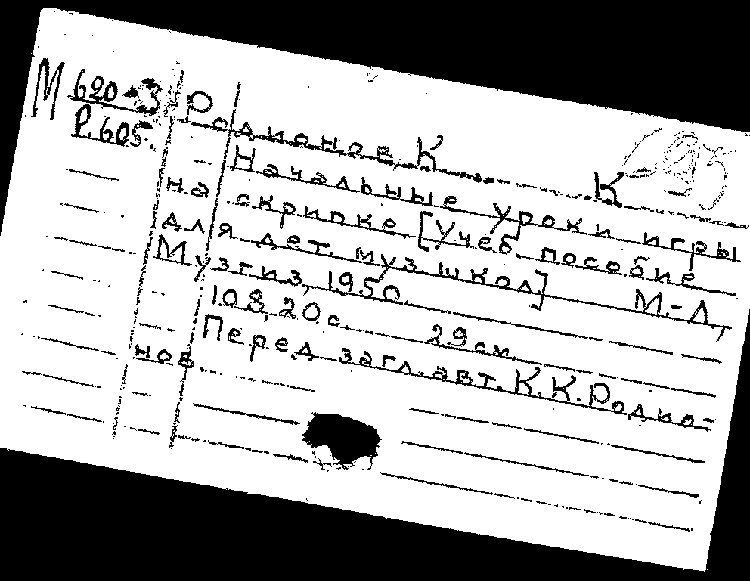 М 620-3
Р.605.
Родионов, К К
Начальные уроки игры
на скрипке. [Учеб. пособие
для дет. муз. школ] М.-Л.,
Музгиз, 1950.
108, 20 с. 29 см.
Перед загл. авт. К. К. Родио-
нов.